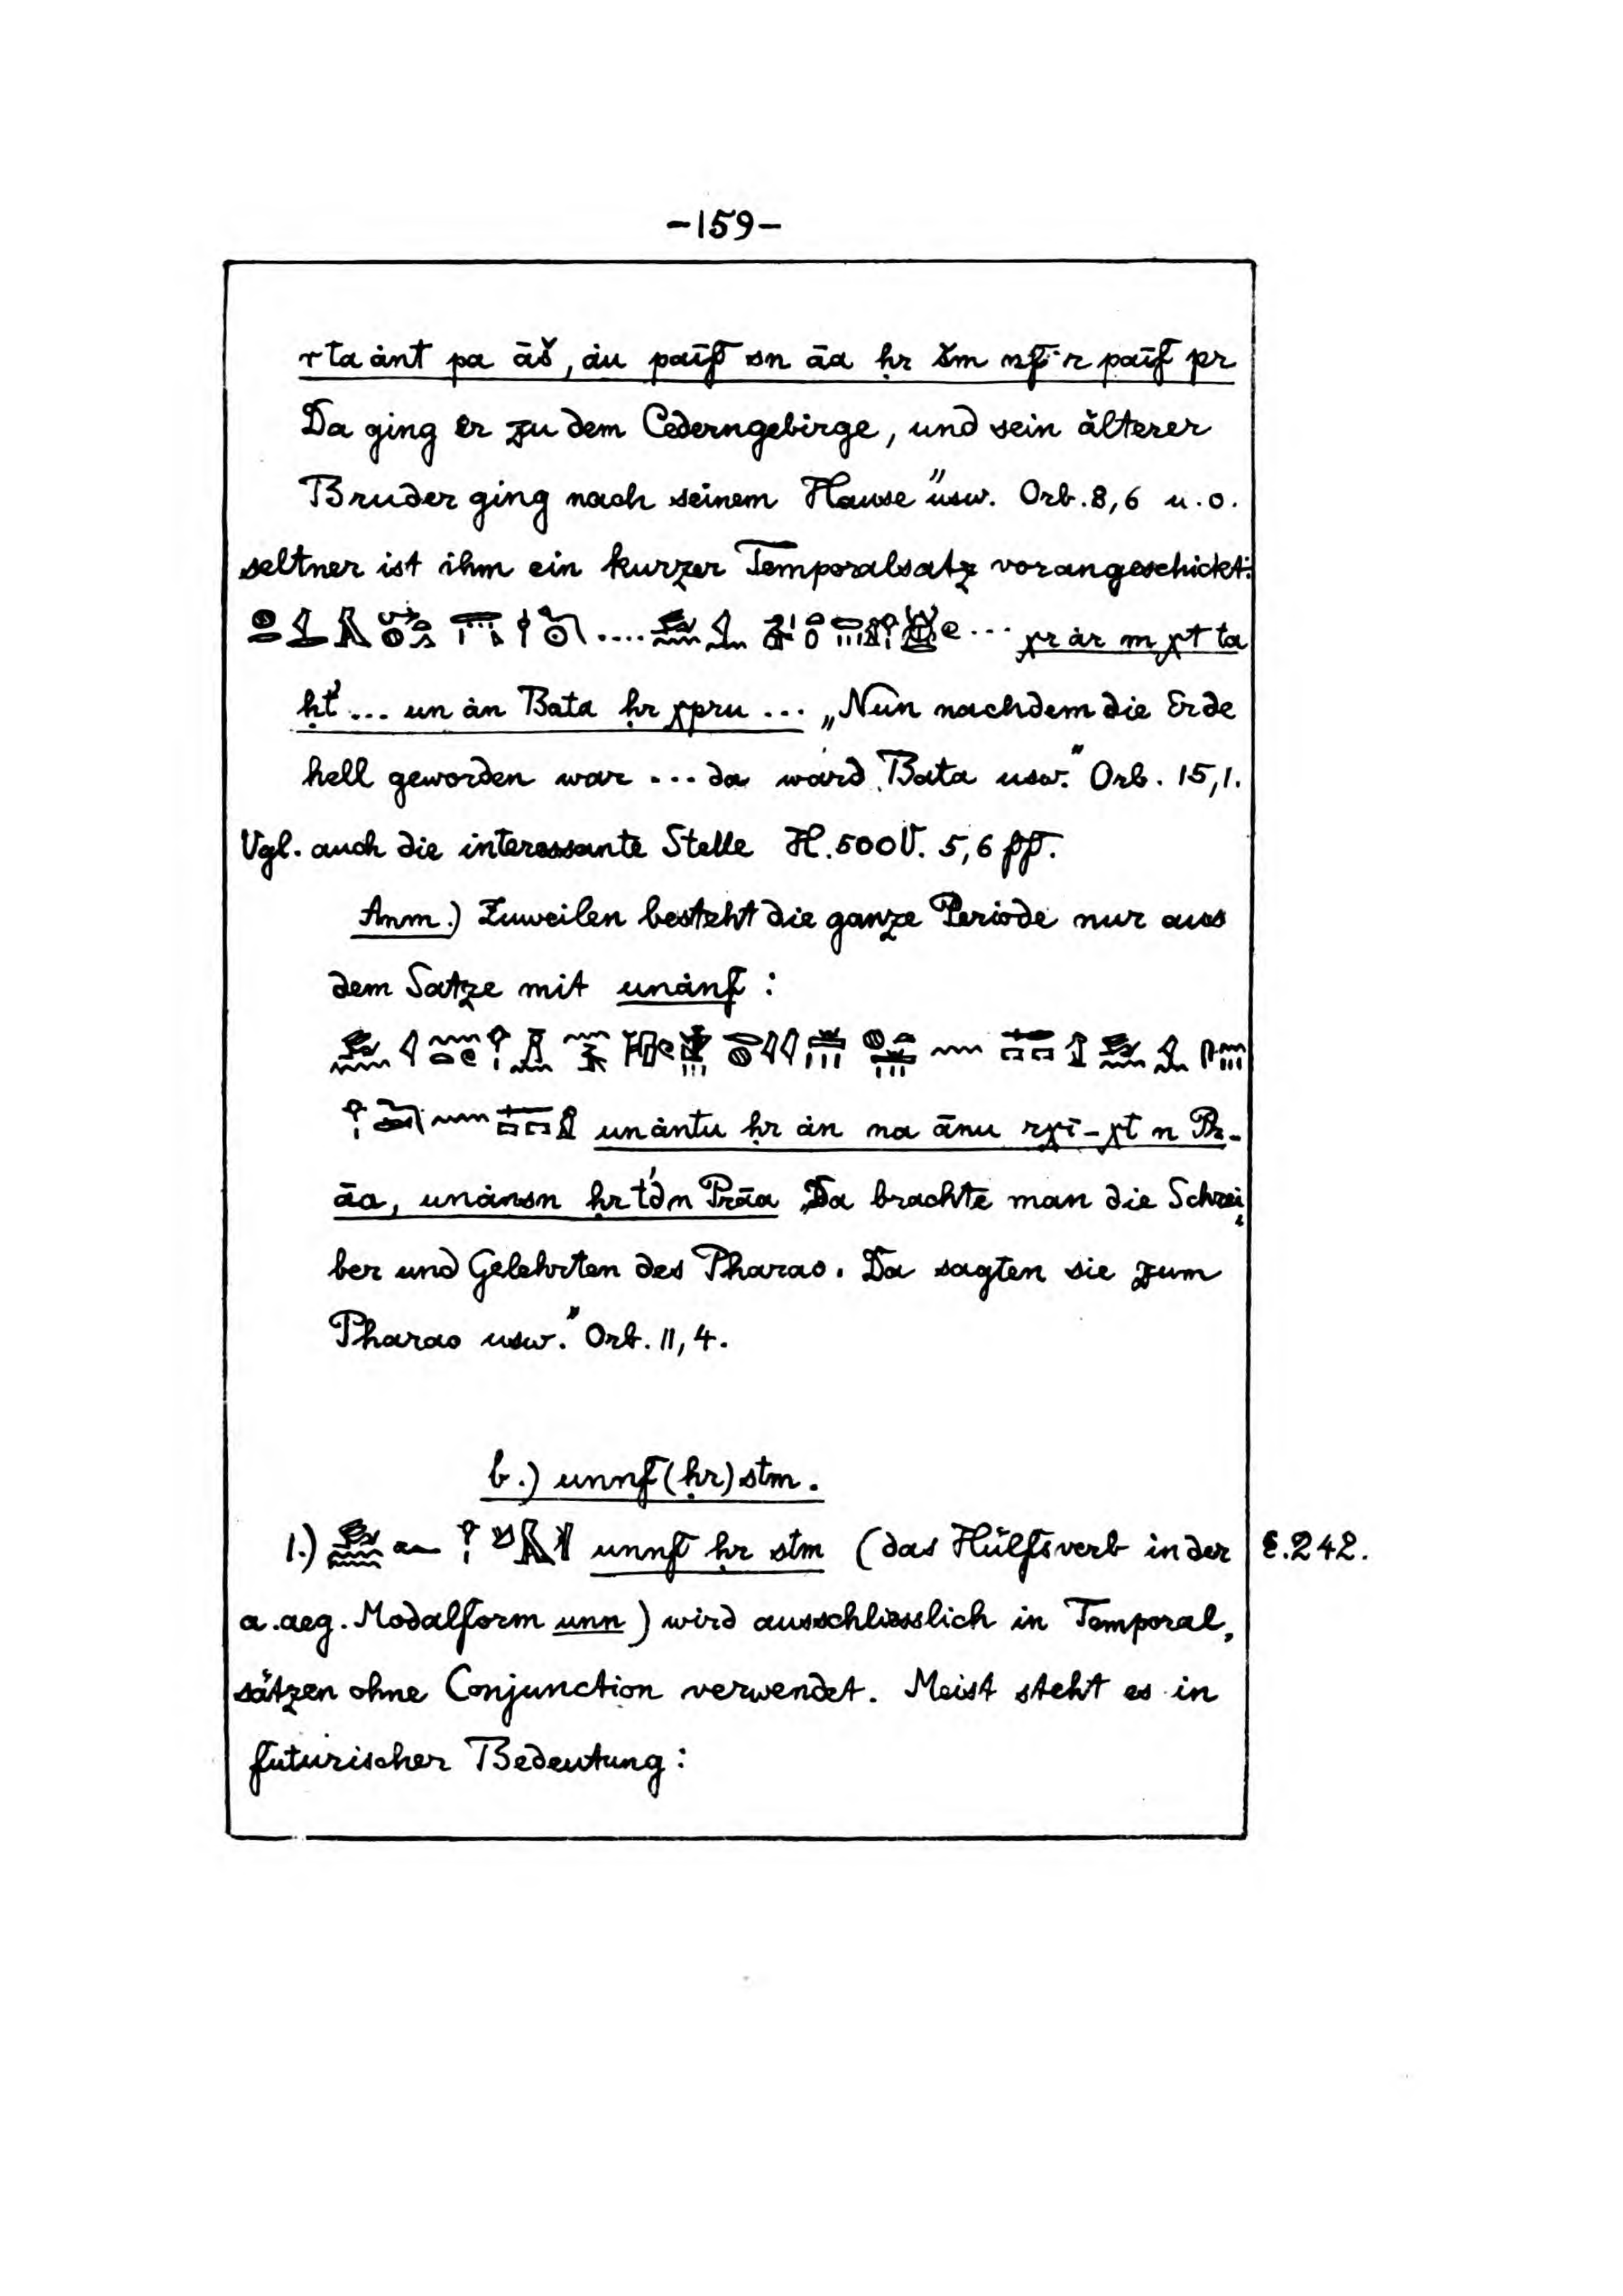 -159-
r ta ȧnt pa āš, ȧu paīf sn āa ḥr šm nf r paīf pr
Da ging er zu dem Cederngebirge, und sein älterer
Bruder ging nach seinem Hause" usw. Orb. 8,6 u. o.
seltner ist ihm ein kurzer Temporalsatz vorangeschickt:
.... ... χr ȧr m χt ta
ḥt' ... un ȧn Bata ḥr χpru ... „Nun nachdem die Erde
hell geworden war ... da ward Bata usw." Orb. 15,1.
Vgl. auch die interessante Stelle H. 500 V. 5,6 ff.
Anm.) Zuweilen besteht die ganze Periode nur aus
dem Satze mit unȧnf :
unȧntu ḥr ȧn na ānu rχī-χt n Pr-
āa, unȧnsn ḥr t'd n Prāa „Da brachte man die Schrei
ber und Gelehrten des Pharao. Da sagten sie zum
Pharao usw." Orb. 11,4.
b.) unnf (ḥr) stm.
1.) unnf ḥr stm (das Hülfsverb in der §.242.
a. aeg. Modalform unn) wird ausschliesslich in Temporal,
sätzen ohne Conjunction verwendet. Meist steht es in
futurischer Bedeutung: